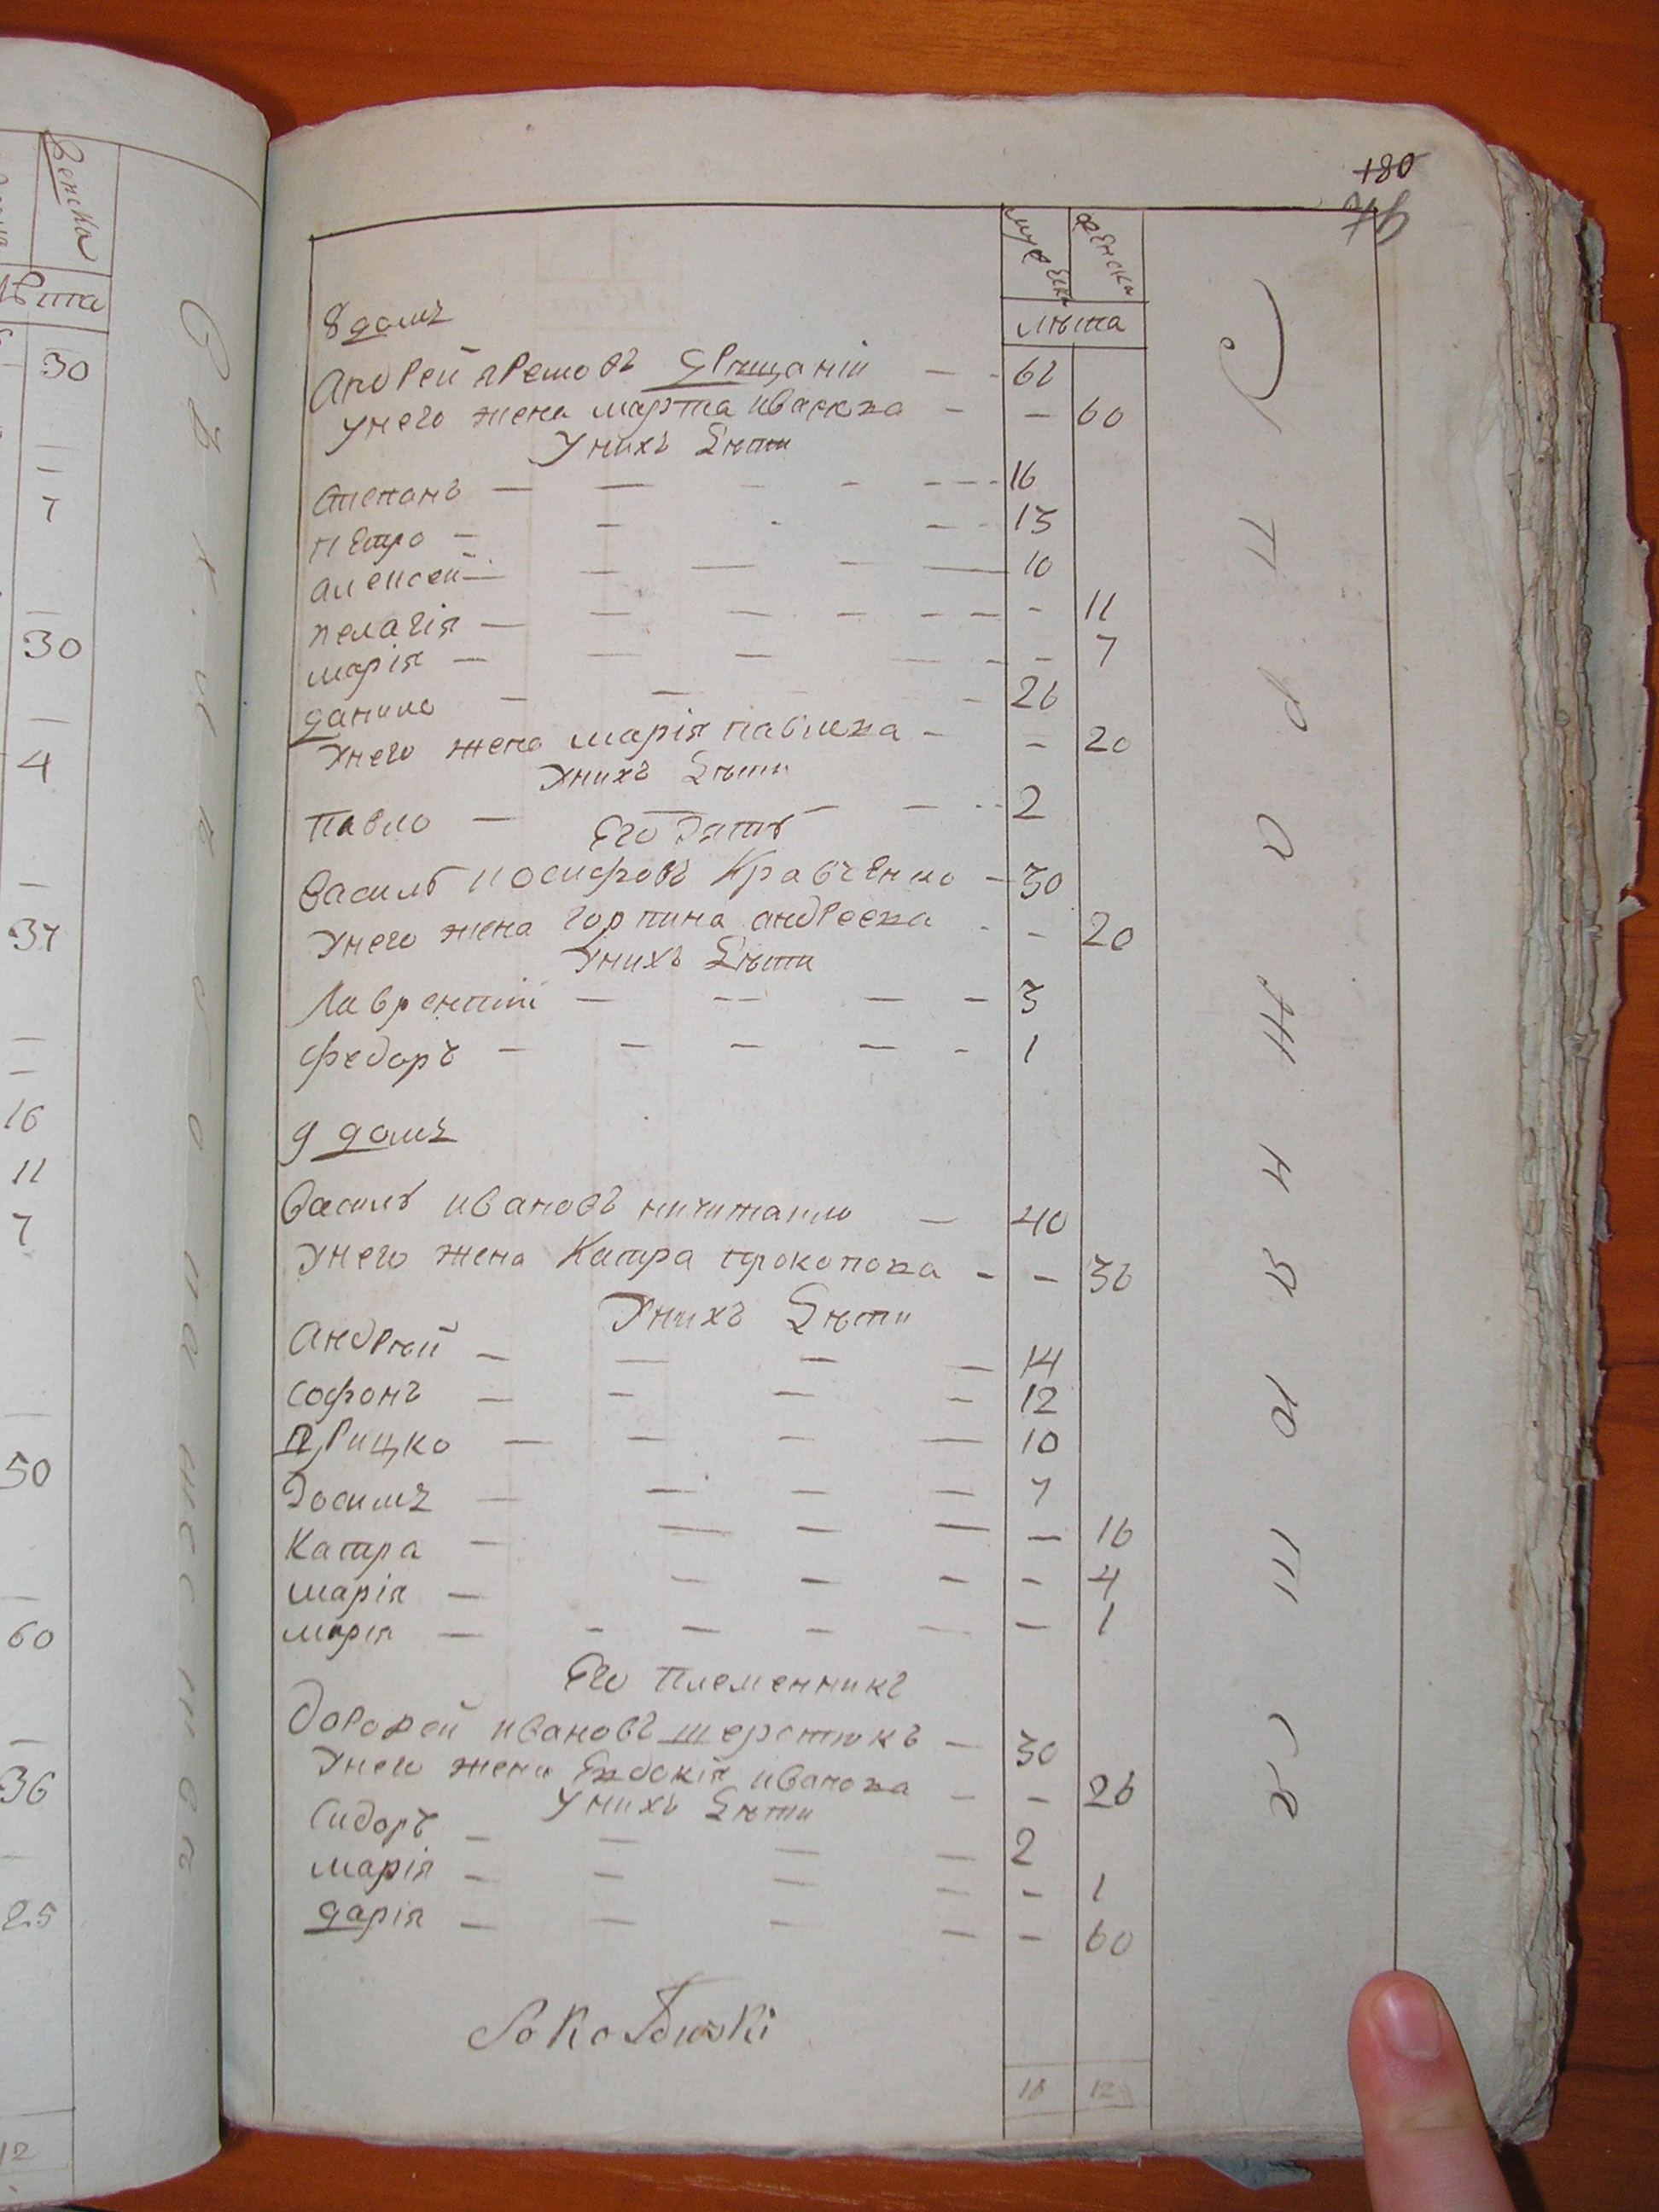 180
76
мужеска женска
лѣта
8 домъ
Андрей яремовъ Грищаній — 62
Унего жена марта иваєкха — — 60
Унихъ Дѣти
Степанъ — 16
петро — 13
алексей — 10
пелагія — — 11
марія — — 7
данило — 26
Унего жена марія павлиха — — 20
Унихъ Дѣти
павло — 2
Его Зять
Василь иосифовъ Кравченко — 30
Унего жена горпина андреева — — 20
Унихъ Дѣти
Лаврентій — 3
федоръ — 1
9 домъ
Василь ивановъ никитанко — 40
Унего жена Катра прокопова — — 36
Унихъ Дѣти
Андрѣй — 14
софонъ — 12
Грицко — 10
Зосимъ — 7
Катра — — 16
марія — — 4
марія — — 1
Его племенникъ
дорофей ивановъ шерстюкъ — 30
Унего жена Евдокія иванова — — 26
Унихъ Дѣти
Сидоръ — 2
марія — — 1
дарія — — 60
Sokołowski
16 12
женска
лѣта
30
7
30
4
37
16
11
7
50
60
36
25
12